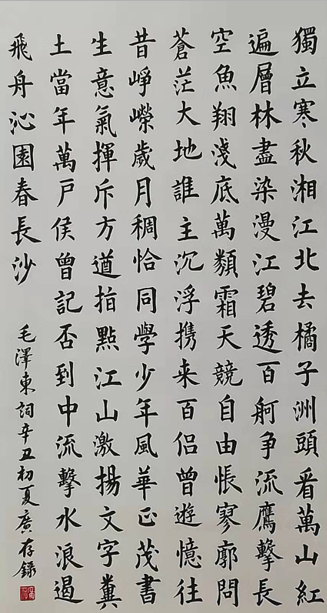 獨立寒秋湘江北去橘子洲頭看萬山紅
遍層林盡染漫江碧透百舸争流鷹擊長
空魚翔淺底萬類霜天競自由悵寥廓問
蒼茫大地誰主沉浮携来百侣曾遊憶往
昔崢嶸歲月稠恰同學少年風華正茂書
生意氣揮斥方遒指點江山激揚文字糞
土當年萬戶侯曾記否到中流擊水浪遏
飛舟沁園春長沙 毛澤東詞辛丑初夏廣存錄